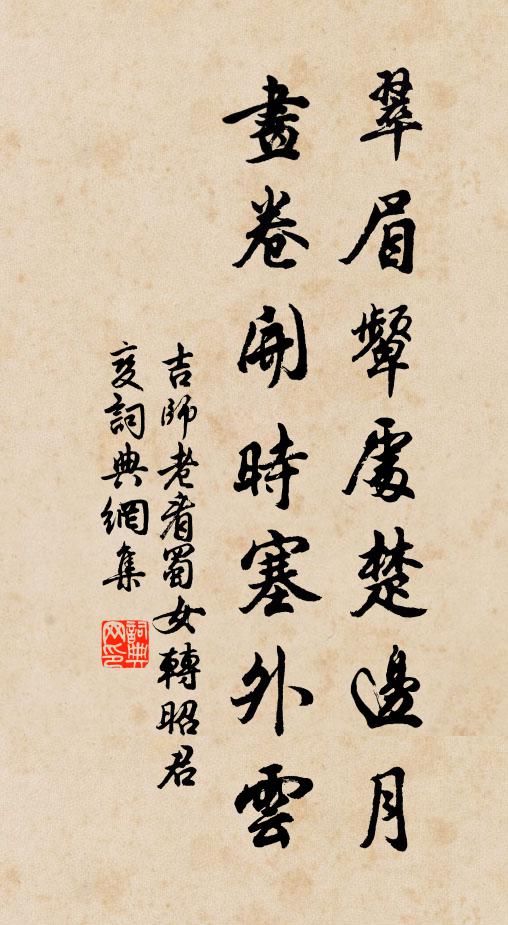 翠眉顰處楚邊月
畫卷開時塞外雲
吉師老看蜀女轉昭君
變詞典網集
詞典网印